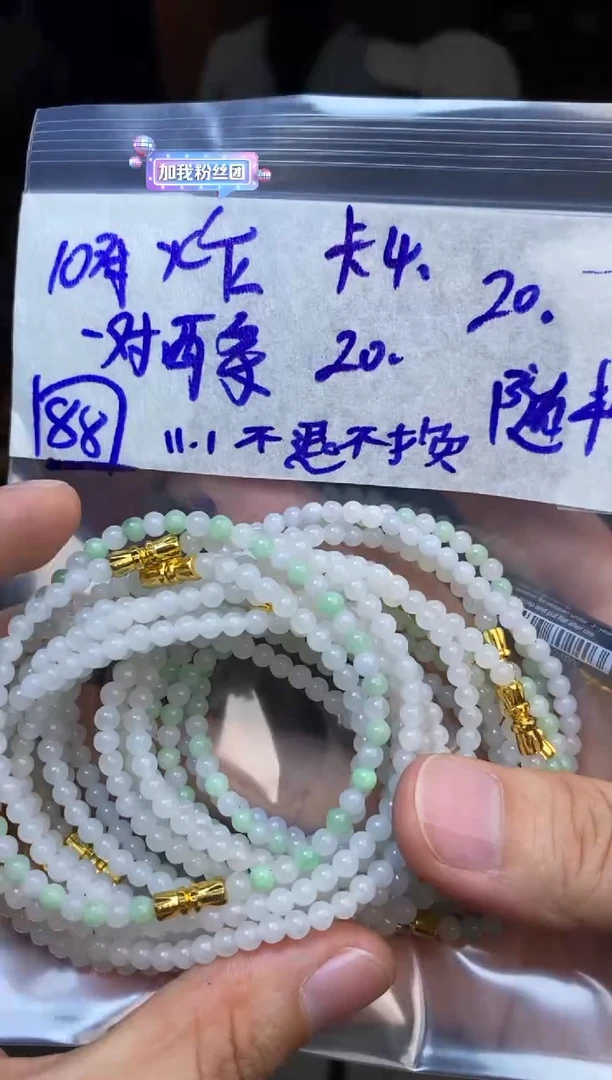 加我粉丝团
10对 炸 卡4、 20.
一对两条 20. 随
88 11.1 不退不换